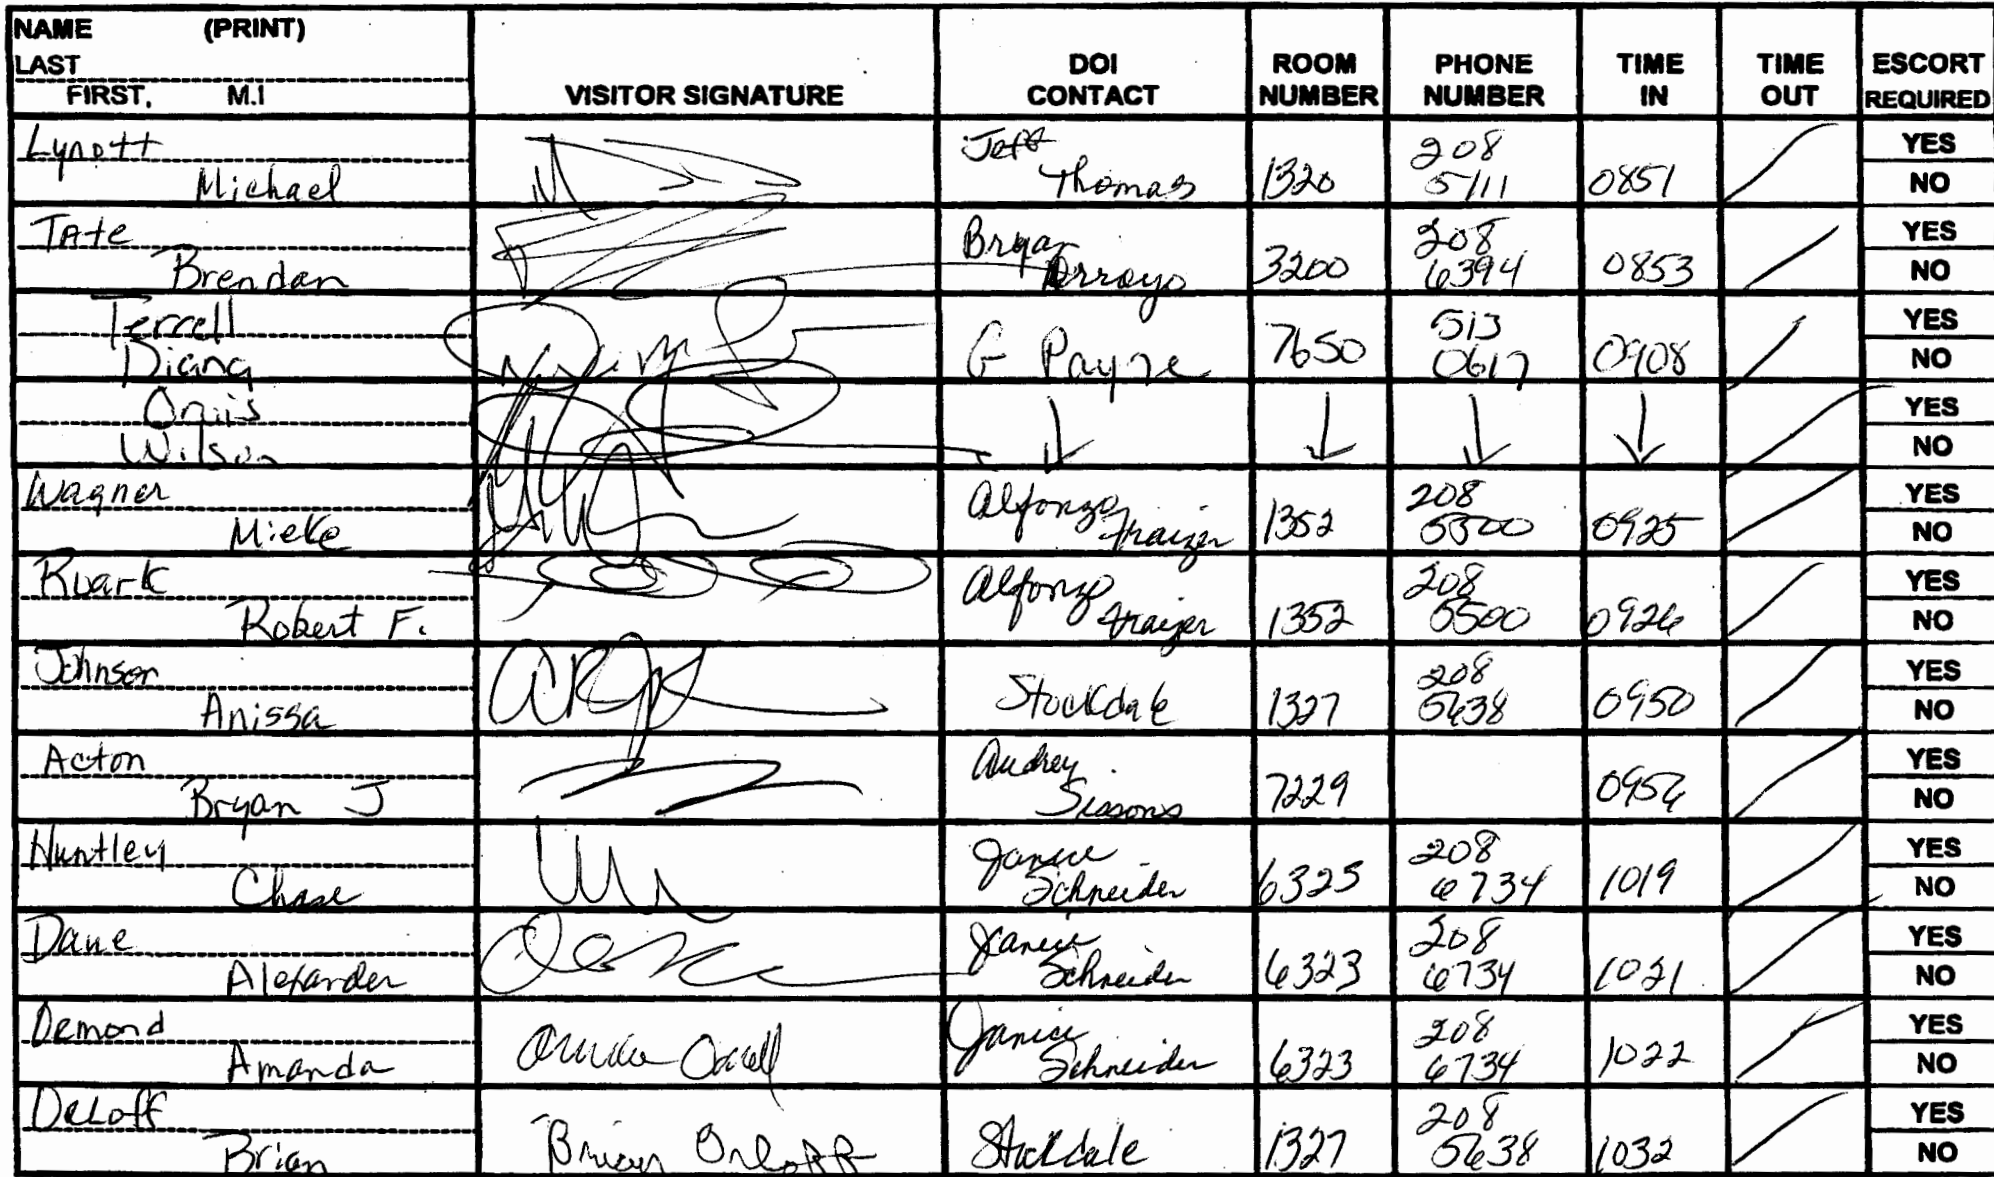 NAME (PRINT)
LAST
FIRST, M.I
VISITOR SIGNATURE
DOI CONTACT
ROOM NUMBER
PHONE NUMBER
TIME IN
TIME OUT
ESCORT REQUIRED
Lynott
Michael
Jeff
Thomas
1320
208
5111
0851
YES
NO
Tate
Brendan
Bryan
Arroyo
3200
208
6394
0853
YES
NO
Terrell
Diana
G Payne
7650
513
0617
0908
YES
NO
Wilson
YES
NO
Wagner
Mieke
Alfonzo
1352
208
5500
0925
YES
NO
Ruark
Robert F.
Alfonzo
1352
208
5500
0926
YES
NO
Johnson
Anissa
Stockdale
1327
208
5638
0950
YES
NO
Acton
Bryan J
Audrey
Sissons
7229
0956
YES
NO
Huntley
Chase
Janice
Schneider
6325
208
6734
1019
YES
NO
Alexander
Janice
Schneider
6323
208
6734
1021
YES
NO
Demond
Amanda
Janice
Schneider
6323
208
6734
1022
YES
NO
Brian
Brian Orloff
Stockdale
1327
208
5638
1032
YES
NO